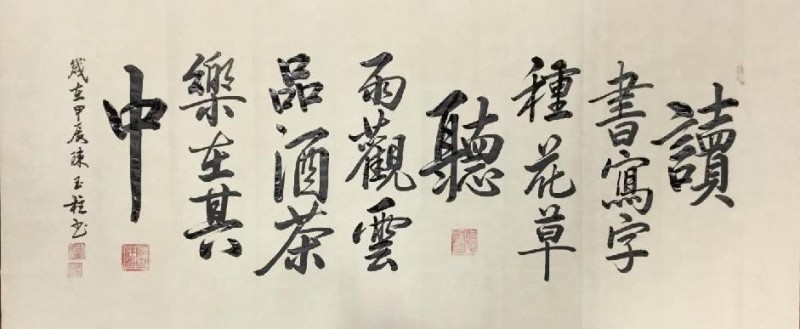 讀
書寫字
種花草
聽
雨觀雲
品酒茶
樂在其
中
歲在甲辰陳玉柱書